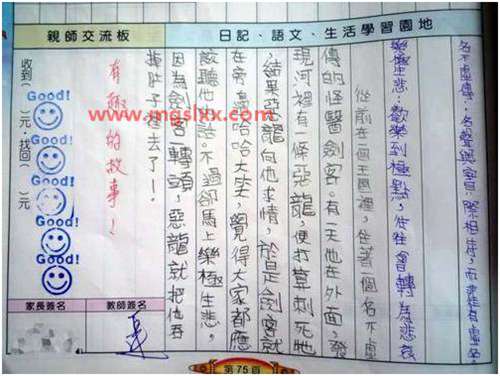 日記、語文、生活學習園地
名不虛傳：名聲與實際相符，而非徒有虛名。
樂極生悲：歡樂到極點，往往會轉為悲哀
從前在一個王國裡，住著一個名不虛
傳的怪醫劍客。有一天他在外面，發
現河裡有一條惡龍，便打算刺死牠
，結果惡龍向他求情，於是劍客就
在旁邊哈哈大笑，覺得大家都應
該聽他的話。不過卻馬上樂極生悲，
因為劍客一轉頭，惡龍就把他吞
掉肚子裡去了！
親師交流板
有趣的故事！
收到（ ）元，找回（ ）元
Good!
Good!
Good!
Good!
Good!
家長簽名
教師簽名
第75頁
www.mgslxx.com